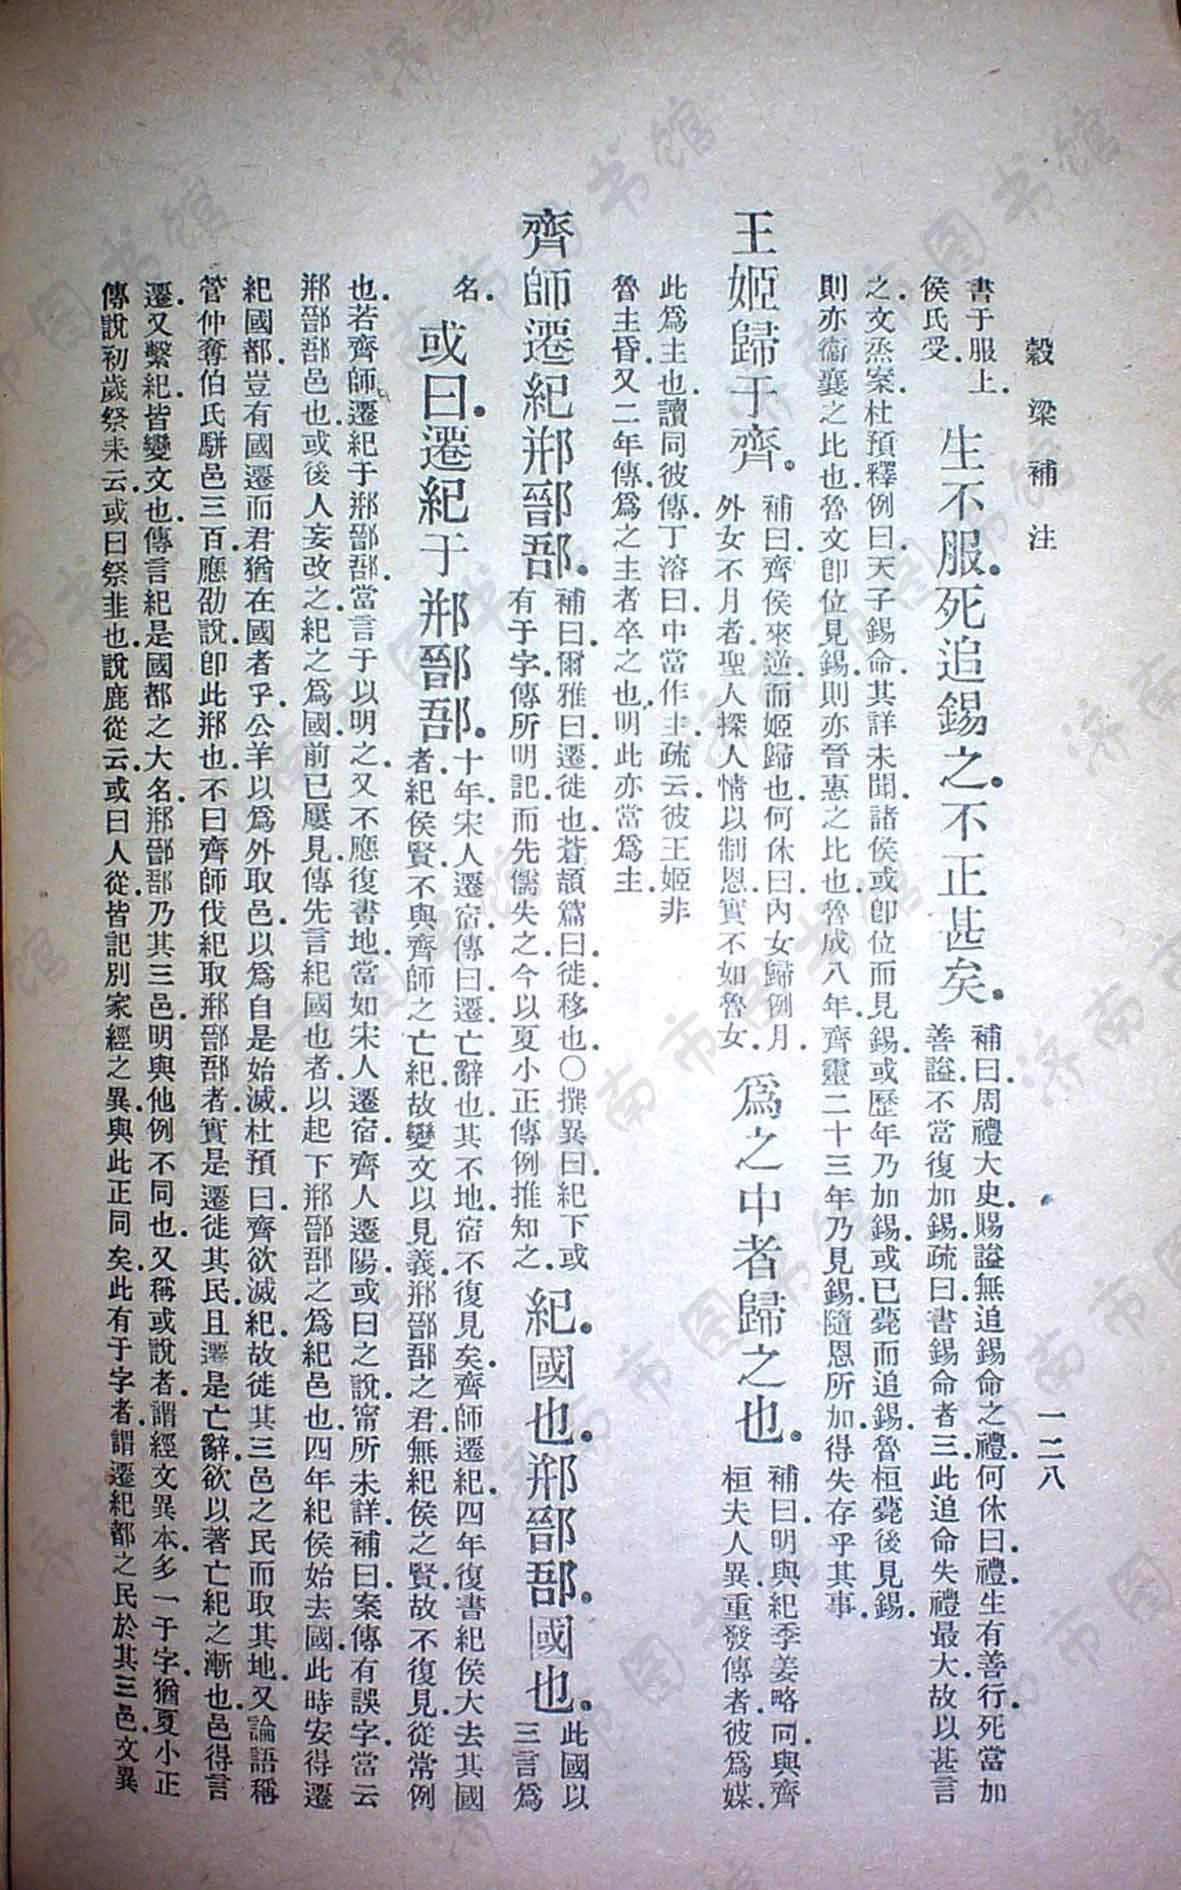 穀梁補注
一二八
書于服上.
侯氏受.
生不服.死追錫之.不正甚矣.
補曰.周禮大史.賜諡無追錫命之禮.何休曰.禮生有善行.死當加
善諡.不當復加錫.疏曰.書錫命者三.此追命失禮最大.故以甚言
之.文烝案.杜預釋例曰.天子錫命.其詳未聞.諸侯或卽位而見錫.或歷年乃加錫.或已薨而追錫.魯桓薨後見錫.
則亦衞襄之比也.魯文卽位見錫.則亦晉惠之比也.魯成八年.齊靈二十三年乃見錫.隨恩所加.得失存乎其事.
王姬歸于齊.
補曰.齊侯來逆而姬歸也.何休曰.內女歸例月.
外女不月者.聖人探人情以制恩.實不如魯女.
爲之中者歸之也.
補曰.明與紀季姜略同.與齊
桓夫人異.重發傳者.彼爲媒.
此爲主也.讀同彼傳.丁溶曰.中當作主.疏云.彼王姬非
魯主昏.又二年傳.爲之主者卒之也.明此亦當爲主.
齊師遷紀郱鄑郚.
補曰.爾雅曰.遷.徙也.蒼頡篇曰.徙.移也.〇撰異曰.紀下或
有于字.傳所明記.而先儒失之.今以夏小正傳例推知之.
紀.國也.郱鄑郚.國也.
此國以
三言爲
名.
或曰.遷紀于郱鄑郚.
十年.宋人遷宿.傳曰.遷.亡辭也.其不地.宿不復見矣.齊師遷紀.四年復書紀侯大去其國
者.紀侯賢.不與齊師之亡紀.故變文以見義.郱鄑郚之君.無紀侯之賢.故不復見.從常例
也.若齊師遷紀于郱鄑郚.當言于以明之.又不應復書地.當如宋人遷宿.齊人遷陽.或曰之說.甯所未詳.補曰.案傳有誤字.當云
郱鄑郚邑也.或後人妄改之.紀之爲國.前已屢見.傳先言紀國也者.以起下郱鄑郚之爲紀邑也.四年紀侯始去國.此時安得遷
紀國都.豈有國遷而君猶在國者乎.公羊以爲外取邑.以爲自是始滅.杜預曰.齊欲滅紀.故徙其三邑之民而取其地.又論語稱
管仲奪伯氏駢邑三百.應劭說.卽此郱也.不曰齊師伐紀取郱鄑郚者.實是遷徙其民.且遷是亡辭.欲以著亡紀之漸也.邑得言
遷.又繫紀.皆變文也.傳言紀是國都之大名.郱鄑郚乃其三邑.明與他例不同也.又稱或說者.謂經文異本.多一于字.猶夏小正
傳說初歲祭耒云.或曰祭韭也.說鹿從云.或曰人從.皆記別家經之異.與此正同矣.此有于字者.謂遷紀都之民於其三邑.文異